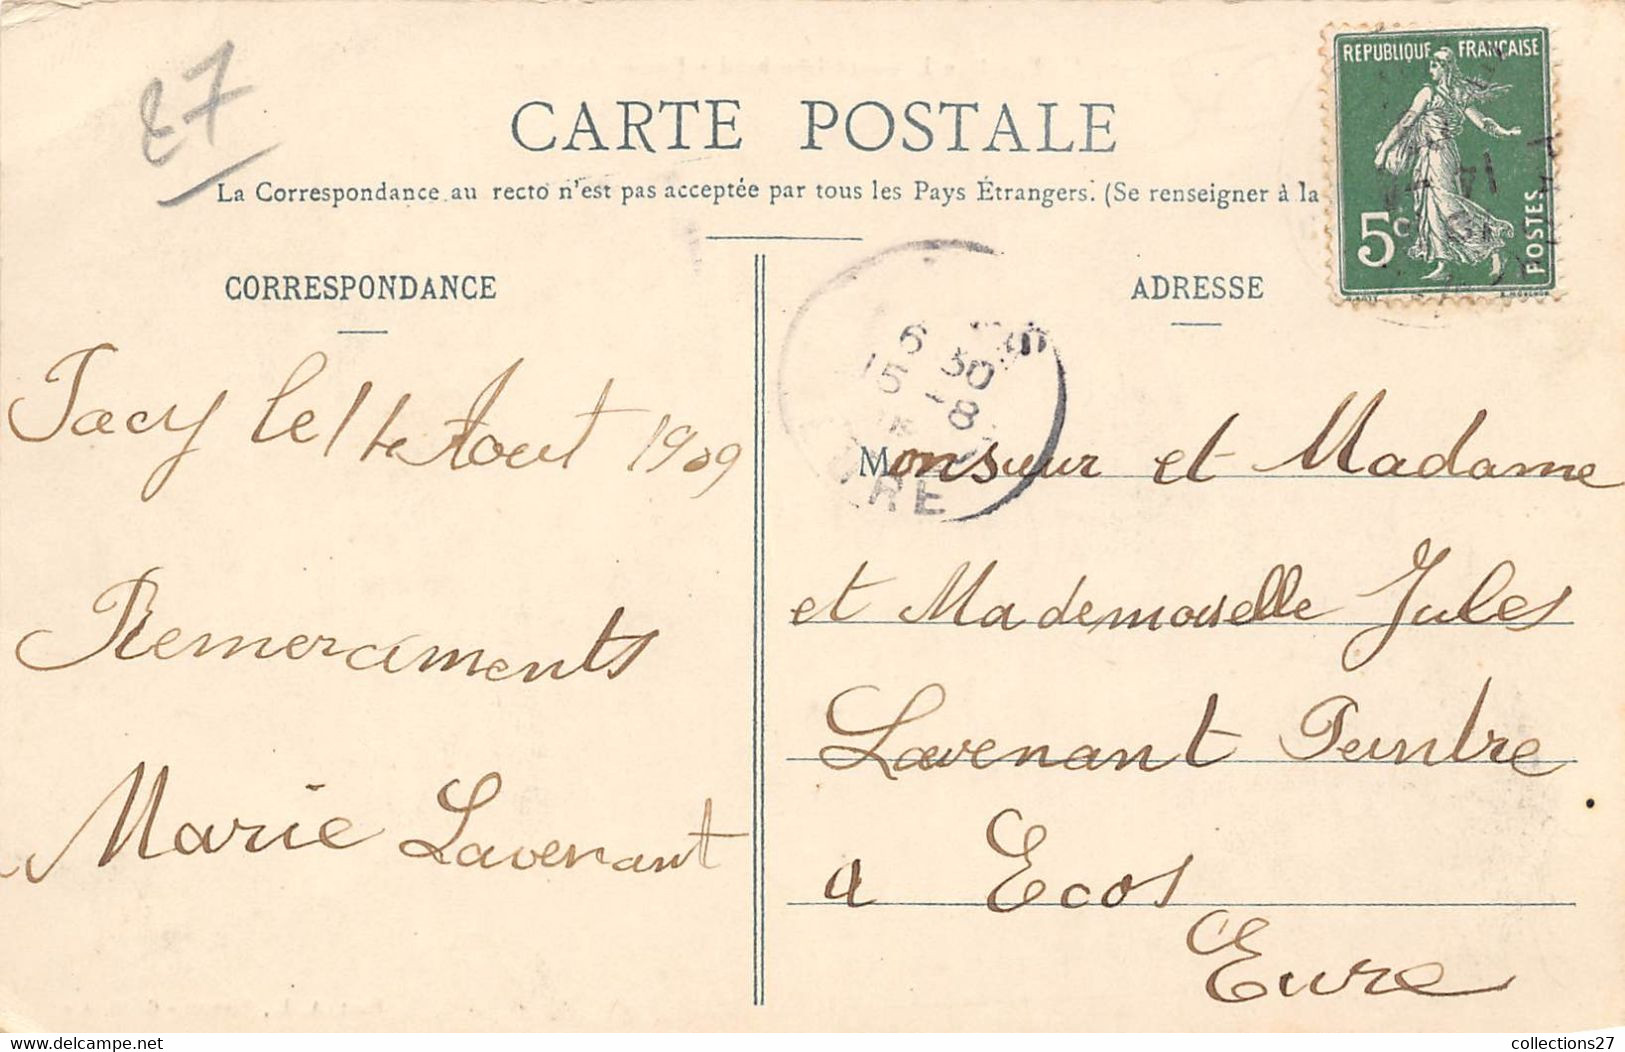 27
CARTE POSTALE
La Correspondance au recto n'est pas acceptée par tous les Pays Étrangers. (Se renseigner à la
REPUBLIQUE FRANÇAISE
5c
POSTES
CORRESPONDANCE
Pacy le 14 Aout 1909
Remerciments
Marie Lavenant
ADRESSE
6 30
15 -8
EURE
Monsieur et Madame
et Mademoiselle Jules
Lavenant Peintre
a Ecos
Eure
collections27